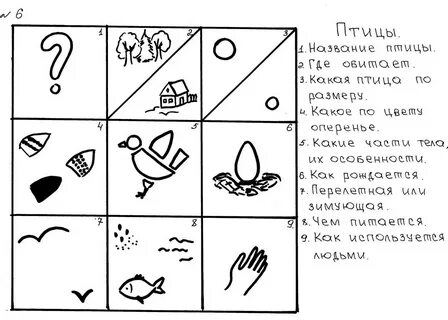 № 6
1
?
2
3
4
5
6
7
8
9.
Птицы.
1. Название птицы.
2. Где обитает.
3. Какая птица по
размеру.
4. Какое по цвету
оперенье.
5. Какие части тела,
их особенности.
6. Как рождается.
7. Перелетная или
зимующая.
8. Чем питается.
9. Как используется
людьми.